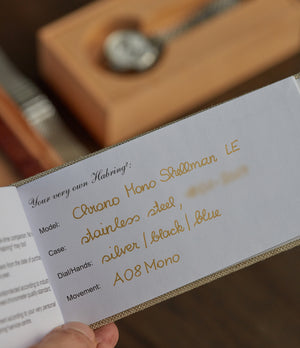 Your very own Habring²:
Model: Chrono Mono Shellman LE
Case: stainless steel,
Dial/Hands: silver/black/blue
Movement: A08 Mono